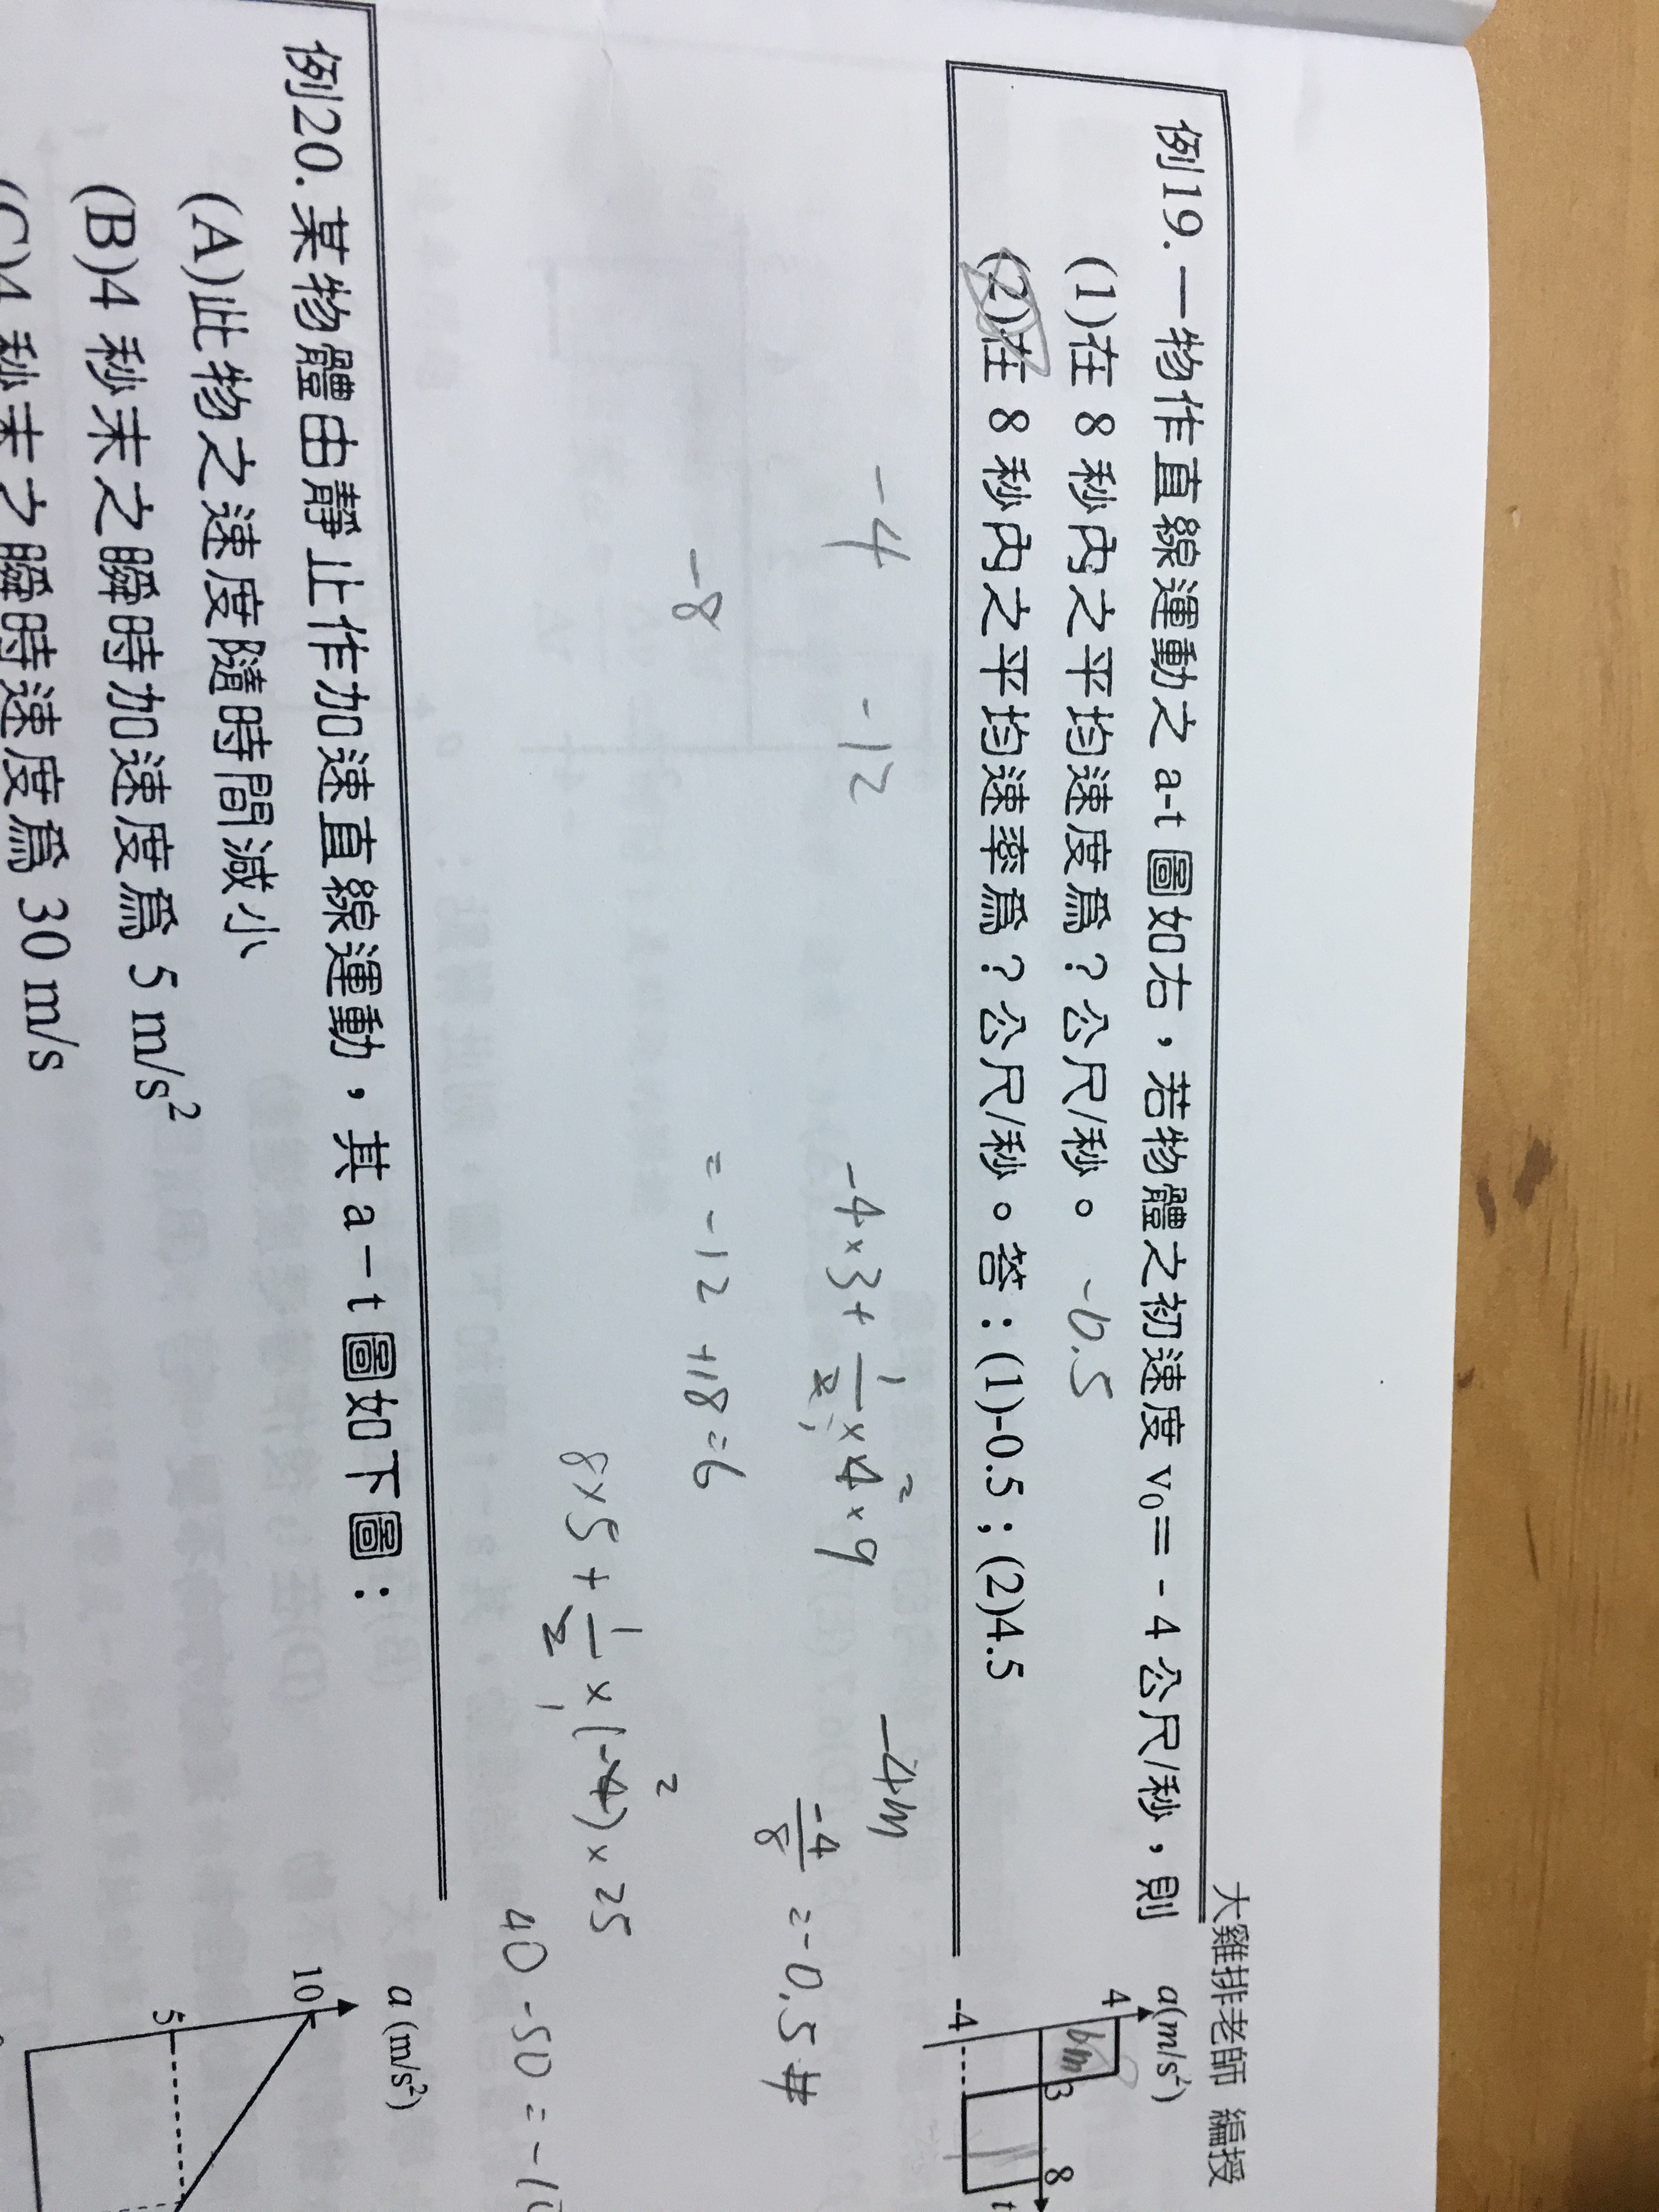 大雞排老師 編授
例19. 一物作直線運動之 a-t 圖如右，若物體之初速度 v₀= - 4 公尺/秒，則
(1)在 8 秒內之平均速度爲？公尺/秒。 -0.5
(2)在 8 秒內之平均速率爲？公尺/秒。答：(1)-0.5；(2)4.5
a(m/s²)
4
6m
3
8
t
-4
-4 -12
-4×3+1/2×4×9
-4m
-8
=-12+18=6
-4/8 =-0.5#
8×5+1/2×(-4)×25
2
1
2
1
40-50=-10
例20. 某物體由靜止作加速直線運動，其 a－t 圖如下圖：
(A)此物之速度隨時間減小
(B)4 秒末之瞬時加速度爲 5 m/s²
(C)4 秒末之瞬時速度爲 30 m/s
a (m/s²)
10
5